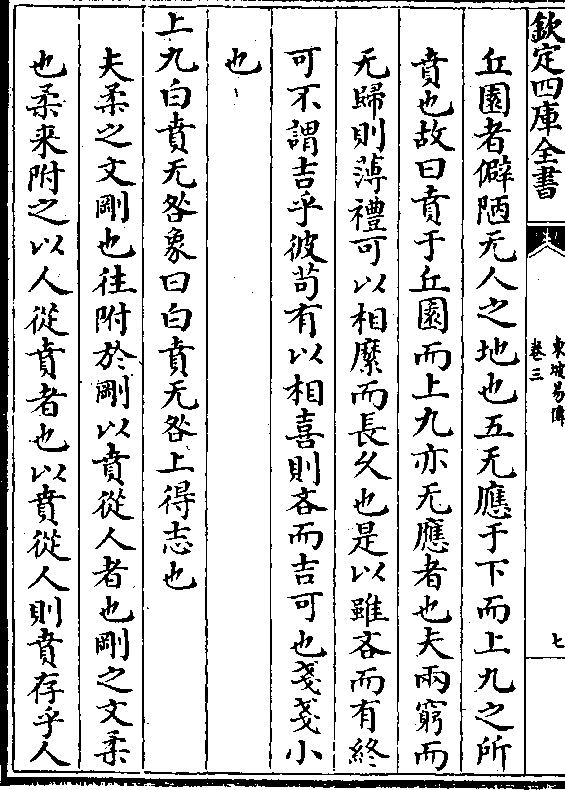 欽定四庫全書
東坡易傳
卷三
七
丘園者僻陋无人之地也五无應于下而上九之所
賁也故曰賁于丘園而上九亦无應者也夫兩窮而
无歸則薄禮可以相縻而長久也是以雖吝而有終
可不謂吉乎彼苟有以相喜則吝而吉可也戔戔小
也
上九白賁无咎象曰白賁无咎上得志也
夫柔之文剛也往附於剛以賁從人者也剛之文柔
也柔来附之以人從賁者也以賁從人則賁存乎人